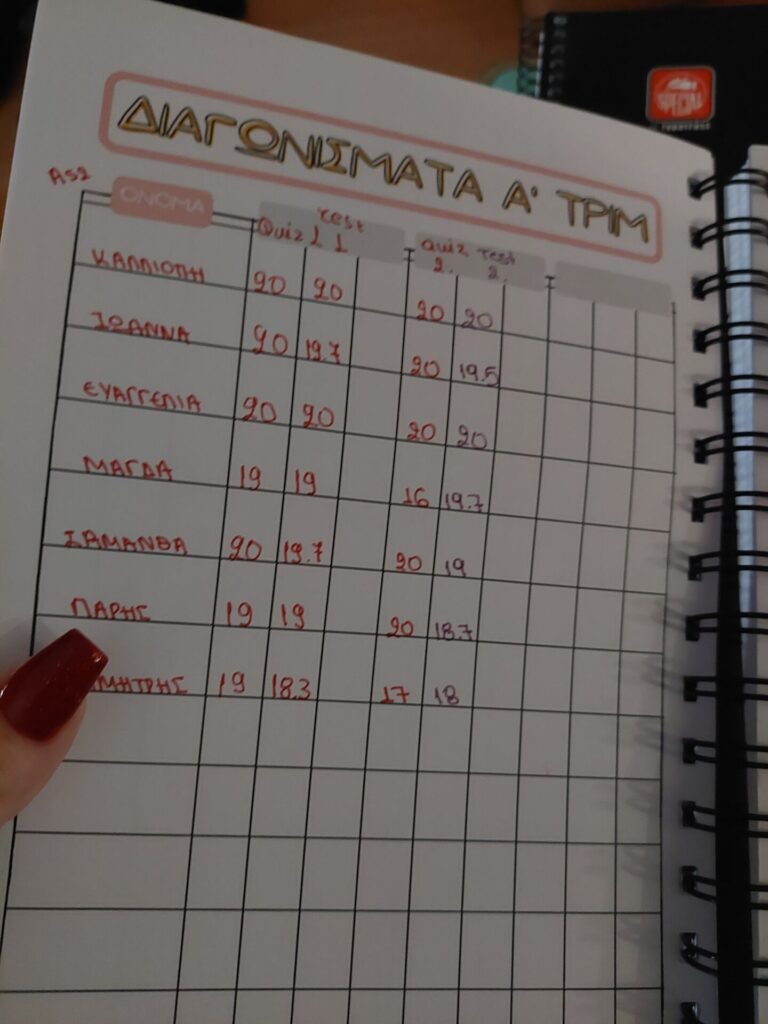 ΔΙΑΓΩΝΙΣΜΑΤΑ Α' ΤΡΙΜ
AS2
ΟΝΟΜΑ Quiz 1 Test 1 Quiz 2. Test 2.
ΚΑΛΛΙΟΠΗ 20 20 20 20
ΙΩΑΝΝΑ 20 19.7 20 19.5
ΕΥΑΓΓΕΛΙΑ 20 20 20 20
ΜΑΓΔΑ 19 19 16 19.7
ΣΑΜΑΝΘΑ 20 19.7 20 19
ΠΑΡΗΣ 19 19 20 18.7
ΜΗΤΡΗΣ 19 18.3 17 18
SPECIAL